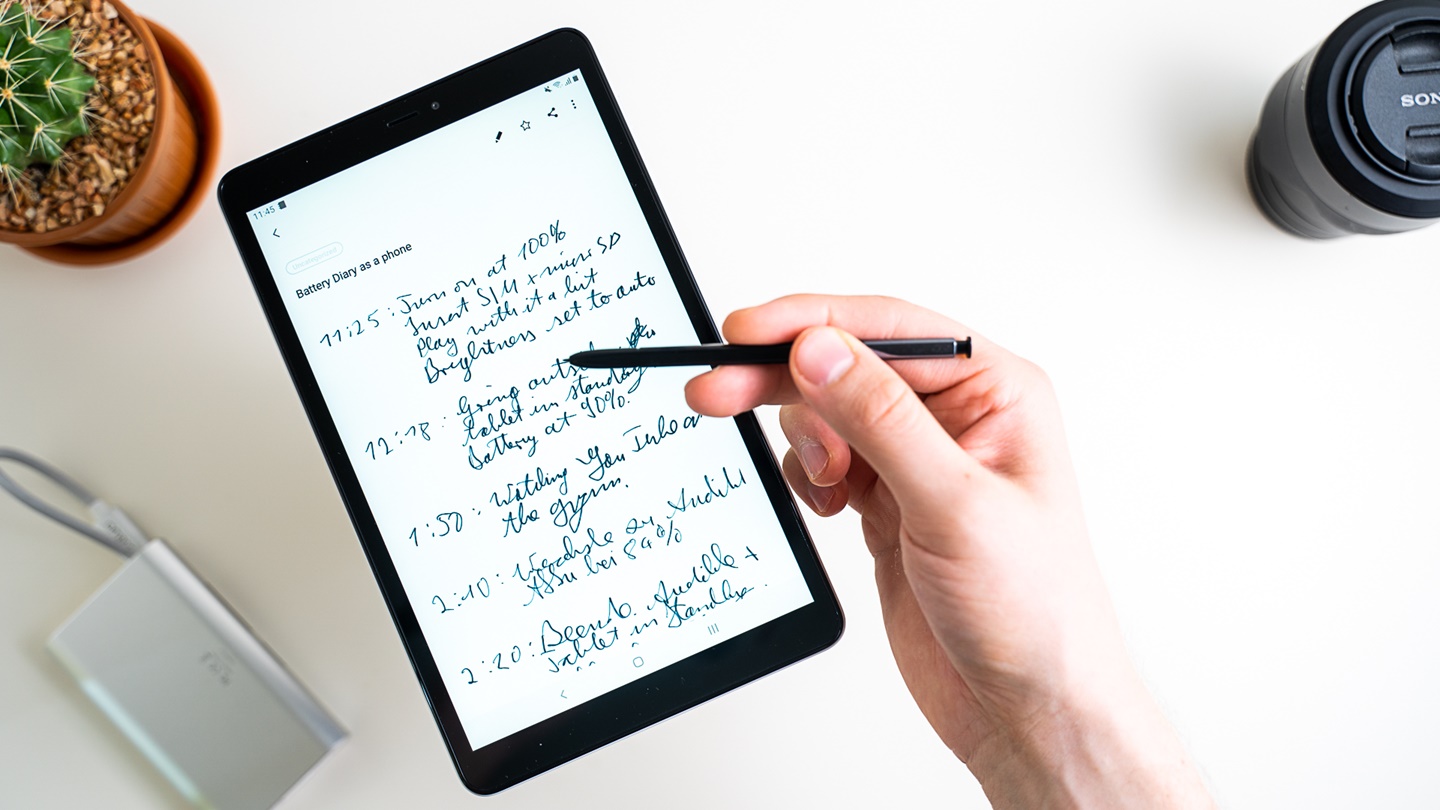 11:45
Uncategorized
Battery Diary as a phone
11:25 : Turn on at 100%
Insert SIM + micro SD
Play with it a bit
Brightness set to auto
12:18 : Going
tablet in standby
battery at 90%.
1:50 : Watching You Tube
the gym.
2:10 : Wechsle zu Audible
bei 84%
2:20 : Beende Audible +
Tablet in Standby.
SON